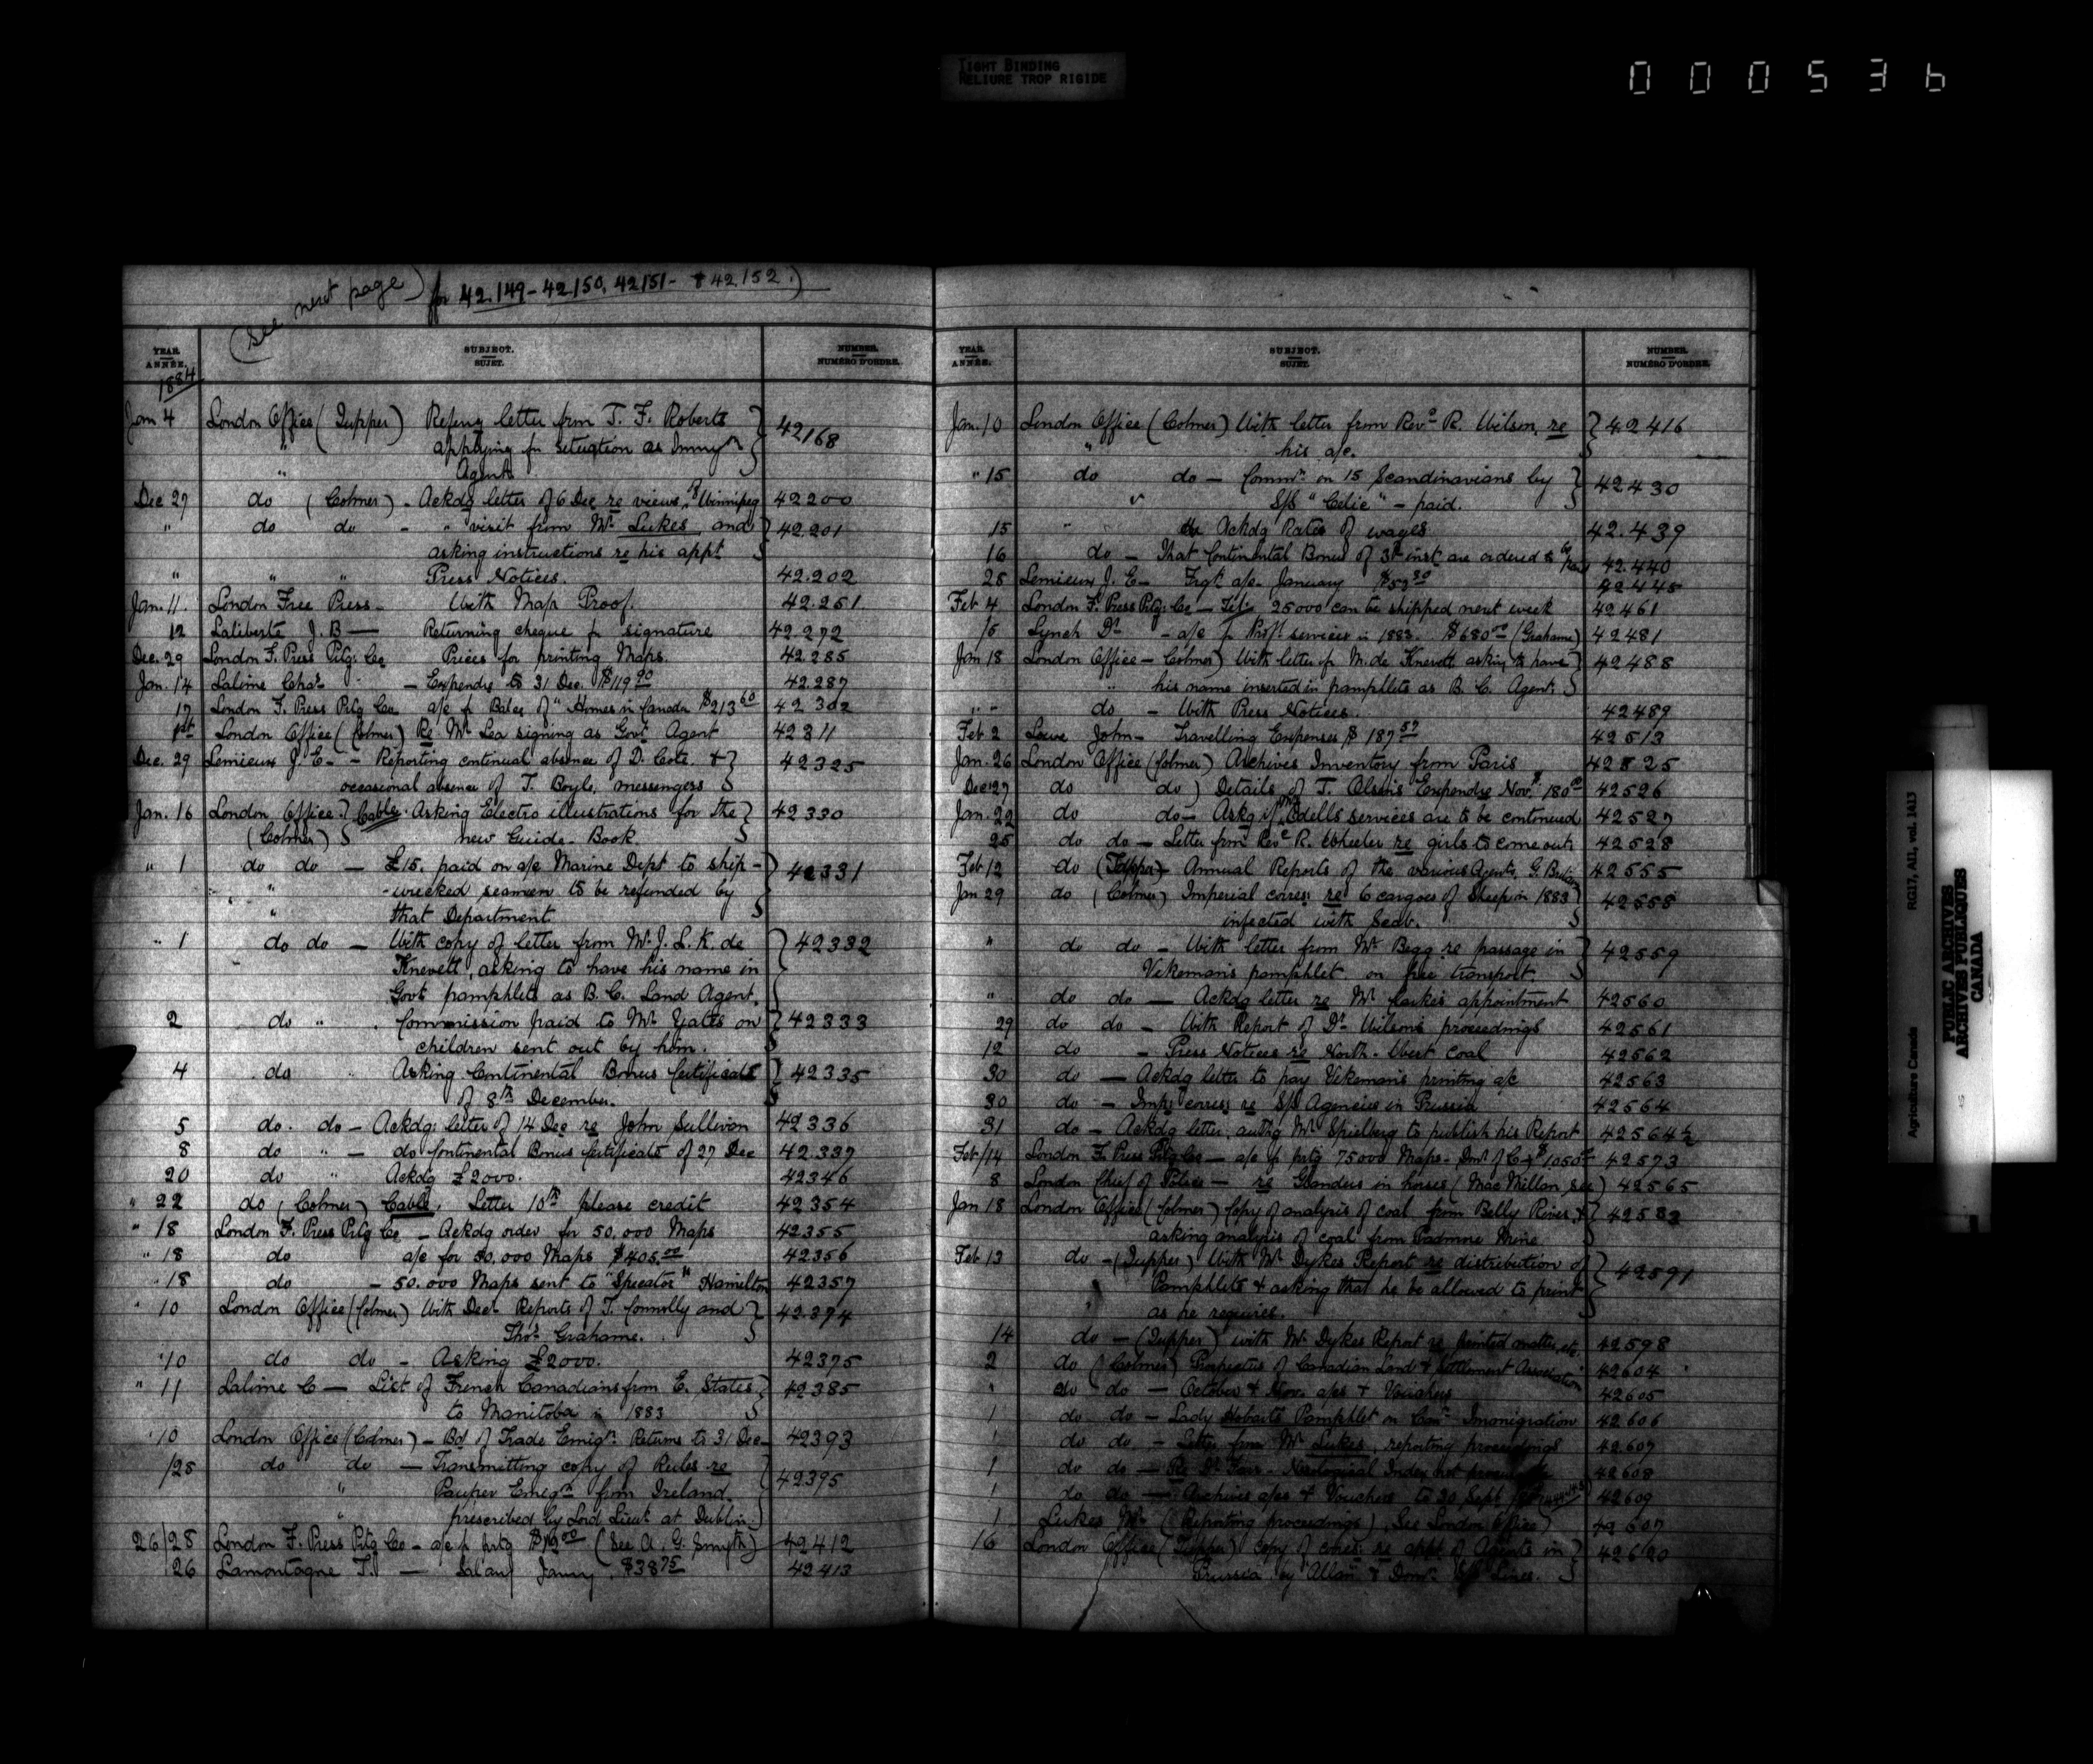 TIGHT BINDING
RELIURE TROP RIGIDE
000536
(See next page) for 42.149 - 42150, 42151 - & 42.152.)
YEAR. ANNÉE. SUBJECT. SUJET. NUMBER. NUMÉRO D'ORDRE.
1884
Jan 4 London Office (Tupper) Refng letter from T. F. Roberts 42168
" applying for Situation as Immgn
" Agent
Dec 27 do (Colmer) - Ackdg letter of 6 Dec re views of Winnipeg 42200
" do do - " visit from Mr Lukes and 42.201
asking instructions re his appt
" " " Press Notices. 42.202
Jan. 11. London Free Press - With Map Proof. 42.251
12 Laliberte J. B — Returning cheque for signature 42.272
Dec. 29 London F. Press Ptg. Co Prices for printing Maps. 42.285
Jan. 14 Lalime Chas - Expendre to 31 Dec. $119 90 42.287
17 London F. Press Ptg Co a/c for Bales of "Homes in Canada $213 60 42302
1st London Office (Colmer) Re Mr Lea signing as Govt Agent 42311
Dec. 29 Lemieux J. E - - Reporting continual absence of D. Cote. & 42325
occasional absence of T. Boyle, messengers
Jan. 16 London Office Cable. Asking Electro illustrations for the 42330
(Colmer) new Guide-Book
" 1 do do — £15. paid on a/c Marine Dept to ship- 42331
" wrecked seamen to be refunded by
" that Department
" 1 do do — With copy of letter from Mr. J. L. K. de 42332
Knevett, asking to have his name in
Govt pamphlets as B. C. Land Agent.
2 do " Commission paid to Mr Yates on 42333
children sent out by him.
4 do " Asking Continental Bonus Certificate 42335
of 8th December.
5 do. do - Ackdg letter of 14 Dec re John Sullivan 42336
8 do " - do Continental Bonus Certificate of 27 Dec 42.337
20 do " Ackdg £2000. 42346
" 22 do (Colmer) Cable. Letter 10th please credit 42354
" 18 London F. Press Ptg Co - Ackdg order for 50,000 Maps 42355
" 18 do a/c for 30,000 Maps $405.00 42356
" 18 do - 50.000 Maps sent to "Specator" Hamilton 42357
" 10 London Office (Colmer) With Decr Reports of J. Connolly and 42.374
Thos. Grahame.
" 10 do do - Asking £2000. 42375
" 11 Lalime C — List of French Canadians from E. States 42385
to Manitoba in 1883
" 10 London Office (Colmer) - Bd of Trade Emign Returns to 31 Dec 42393
/28 do do — Transmitting copy of Rules re 42395
" Pauper Emign from Ireland.
" prescribed by Lord Lieut at Dublin.
26/28 London F. Press Ptg Co - a/c for prtg (See A. G. Smyth) 42412
26 Lamontagne T. — Salary Janry. $38 75 42413
YEAR. ANNÉE. SUBJECT. SUJET. NUMBER. NUMÉRO D'ORDRE.
Jan. 10 London Office (Colmer) With letter from Revd R. Wilson, re 42416
" his a/c.
" 15 do do - Commn on 15 Scandinavians by 42430
" S/S "Celtic" - paid.
15 " Ackdg Rates of wages 42.439
16 do - That Continental Bonus of 3d inst are ordered to be 42.440
28 Lemieux J. E - Frgt a/c January 42445
Feb. 4 London F. Press Ptg. Co - Tel. 25000 can be shipped next week 42461
/5 Lynch Dr - a/c for Proffl services in 1883. $680 00 (Grahame) 42481
Jan 18 London Office - Colmer) With letter fr M. de Knevett asking to have 42488
" his name inserted in pamphlets as B. C. Agent.
" " do - With Press Notices. 42489
Feb 2 Lowe John - Travelling Expenses $ 187 57 42513
Jan. 26 London Office (Colmer) Archives Inventory from Paris 42525
Dec 27 do do) Details of T. Olsin's Expendre Novr $180 00 42526
Jan. 22 do do - Askg if Mr Odells services are to be continued 42527
25 do do - Letter from Revd R. Wheeler re girls to come out 42528
Feb 12 do (Tupper) Annual Reports of the various Agents, G. Britain 42555
Jan 29 do (Colmer) Imperial corres. re 6 cargoes of Sheep in 1883 42558
infected with Scab.
" do do - With letter from Mr Begg re passage in 42559
Vekeman's pamphlet on free transport.
" do do — Ackdg letter re Mr appointment 42560
29 do do - With Report of Dr Wilson's proceedings 42561
12 do - Press Notices re North-West Coal 42562
30 do — Ackdg letter to pay Vekeman's printing a/c 42563
30 do - Imp. corres. re S/S Agencies in Prussia 42564
31 do - Ackdg letter, authg Mr Spielberg to publish his Report 42564½
Feb /14 London F. Press Ptg Co - a/c for prtg 75000 Maps - Domn of C - $1050 42573
8 London Chief of Police — re Glanders in horses (MacMillan, see) 42565
Jan 18 London Office (Colmer) Copy of analysis of coal from Belly River & 42583
asking analysis of coal from Mine
Feb 13 do - (Tupper) With Mr Dykes Report re distribution of 42591
Pamphlets & asking that he be allowed to print
" as he requires.
14 do - (Tupper) with Mr. Dykes Report re printed matter, etc. 42598
2 do (Colmer) Prospectus of Canadian Land & Settlement Association 42604
" do do - October & Nov. a/cs & Vouchers 42605
1 do do - Lady Hobarts Pamphlet on Can. Immigration 42606
1 do do - Letter from Mr Lukes, reporting proceedings 42607
1 do do - Re Dr - Index not 42608
1 do do - Archives a/cs & Vouchers to 30 Sept 42609
1 Lukes Mr (Reporting proceedings) See London Office) 42607
16 London Office (Tupper) copy of corres. re appt of Agents in 42620
Prussia by Allan & Domn S/S Lines.
Agriculture Canada RG17, AII, vol. 1413
PUBLIC ARCHIVES
ARCHIVES PUBLIQUES
CANADA